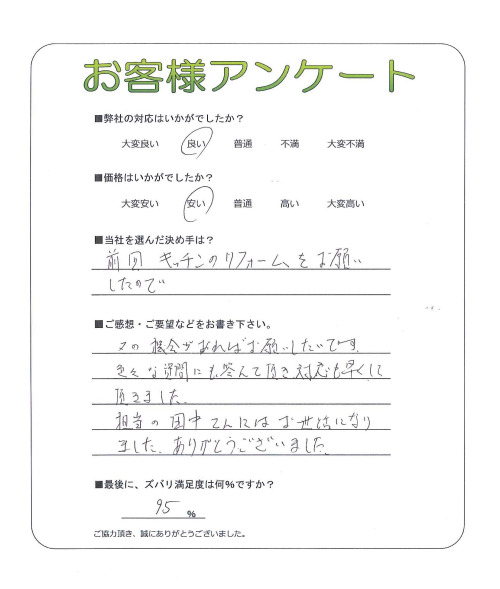 お客様アンケート
■弊社の対応はいかがでしたか？
大変良い 良い 普通 不満 大変不満
■価格はいかがでしたか？
大変安い 安い 普通 高い 大変高い
■当社を選んだ決め手は？
前回 キッチンのリフォームをお願い
したので
■ご感想・ご要望などをお書き下さい。
又の機会があればお願いしたいです。
色々な質問にも答えて頂き対応も早くして
頂きました。
担当の田中さんにはお世話になり
ました。ありがとうございました。
■最後に、ズバリ満足度は何％ですか？
95 %
ご協力頂き、誠にありがとうございました。